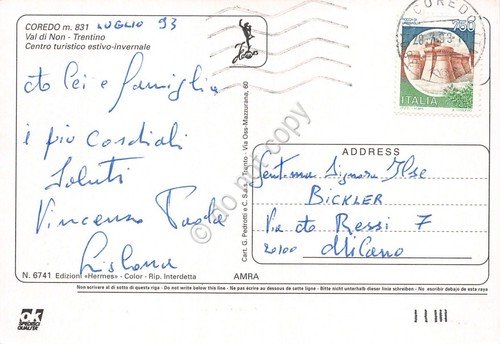 COREDO m. 831 LUGLIO 93
Val di Non - Trentino
Centro turistico estivo-invernale
a Lei e famiglia
i più cordiali
Saluti
Vincenzo Paola
N. 6741 Edizioni «Hermes» - Color - Rip. Interdetta
Cart. G. Pedrotti e C. S.a.s. - Trento - Via Oss-Mazzurana, 60
COREDO
750
ITALIA
ADDRESS
Gent.ma Signora Ilse
BICKLER
Via 7
20100 Milano
AMRA
Non scrivere al di sotto di questa riga - Do not write below this line - Ne pas écrire au dessous de cette ligne - Bitte nicht unterhalb dieser linie schreiben - No escribir debajo de esta raya
OK
SPECIFICI
QUALITA'
do not copy